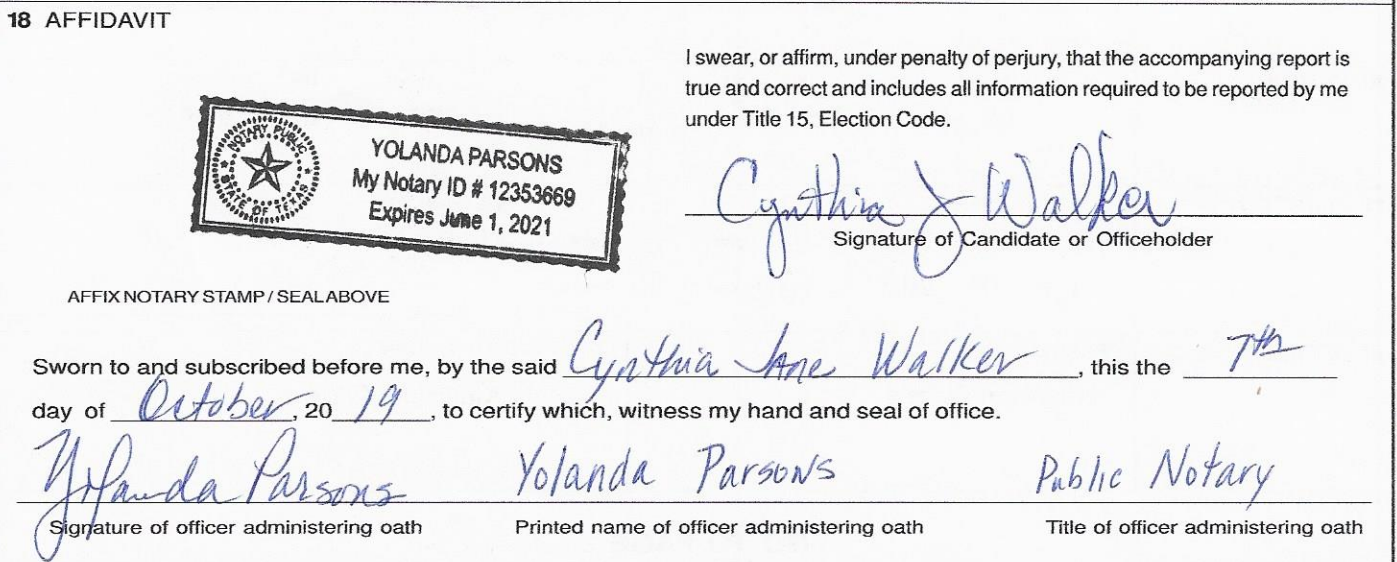 18 AFFIDAVIT
I swear, or affirm, under penalty of perjury, that the accompanying report is
true and correct and includes all information required to be reported by me
under Title 15, Election Code.
NOTARY PUBLIC
STATE OF TEXAS
YOLANDA PARSONS
My Notary ID # 12353669
Expires June 1, 2021
Cynthia J Walker
Signature of Candidate or Officeholder
AFFIX NOTARY STAMP / SEAL ABOVE
Sworn to and subscribed before me, by the said Cynthia Jane Walker, this the 7th
day of October, 20 19, to certify which, witness my hand and seal of office.
Yolanda Parsons Yolanda Parsons Public Notary
Signature of officer administering oath Printed name of officer administering oath Title of officer administering oath